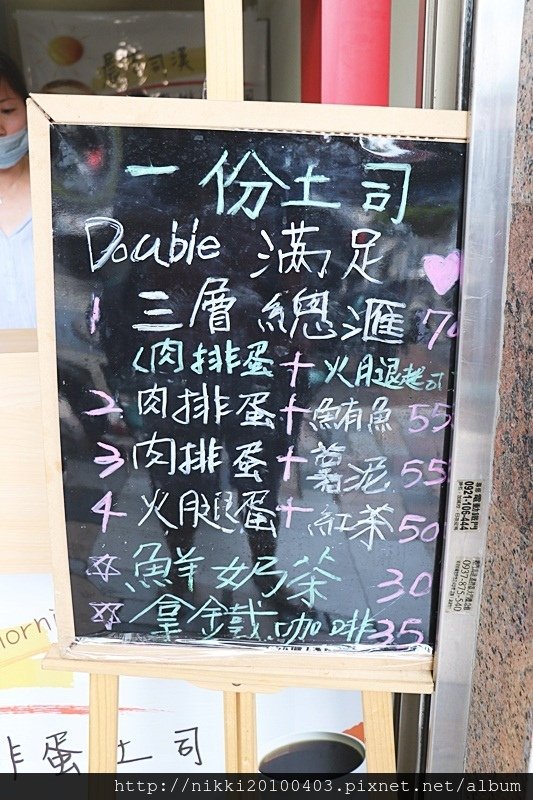 晨吉司漢
一份土司
Double 滿足
1 三層總滙 70
(肉排蛋+火腿起司
2 肉排蛋+鮪魚 55
3 肉排蛋+薯泥 55
4 火腿蛋+紅茶 50
☆ 鮮奶茶 30
☆ 拿鐵咖啡 35
0921-106-444
0937-875-540
orni
排蛋土司
http://nikki20100403.pixnet.net/album